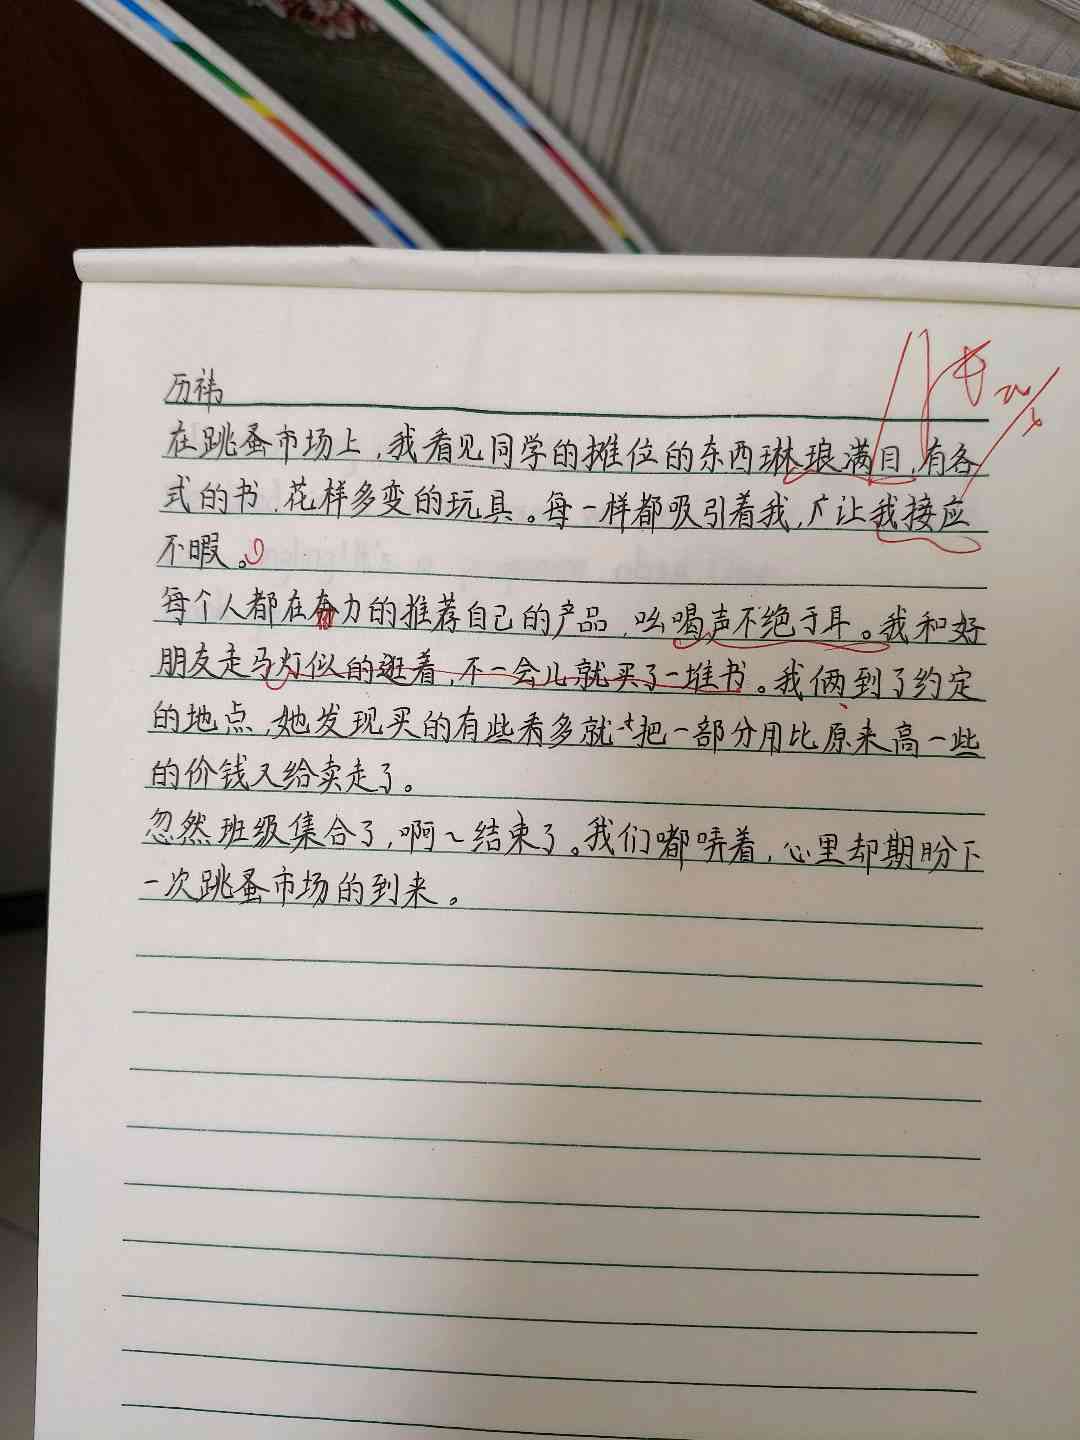 历祎
在跳蚤市场上,我看见同学的摊位的东西琳琅满目,有各
式的书、花样多变的玩具。每一样都吸引着我,让我接应
不暇。
每个人都在奋力的推荐自己的产品,吆喝声不绝于耳。我和好
朋友走马灯似的逛着,不一会儿就买了一堆书。我俩到了约定
的地点,她发现买的有些看多就把一部分用比原来高一些
的价钱又给卖走了。
忽然班级集合了,啊~结束了。我们嘟哝着,心里却期盼下
一次跳蚤市场的到来。